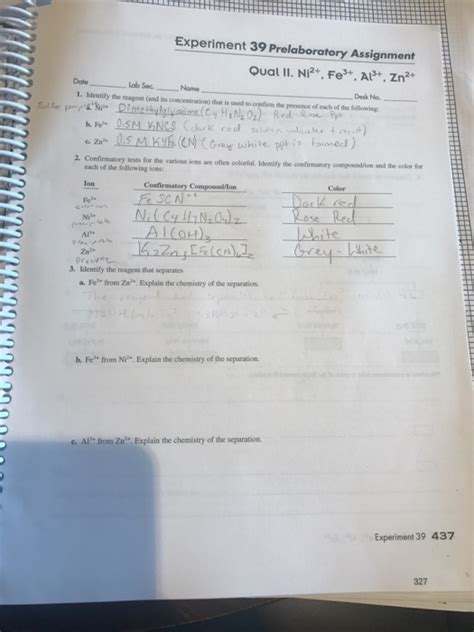 Experiment 39 Prelaboratory Assignment
Qual II. Ni2+, Fe3+, Al3+, Zn2+
Date Lab Sec. Name Desk No.
1. Identify the reagent (and its concentration) that is used to confirm the presence of each of the following:
a. Ni2+ Dimethylglyoxime (C4H8N2O2) Red Rose Ppt
b. Fe3+ 0.5M KNCS (dark red soln indicates + result)
c. Zn2+ (Gray white ppt is formed)
2. Confirmatory tests for the various ions are often colorful. Identify the confirmatory compound/ion and the color for
each of the following ions:
Ion Confirmatory Compound/Ion Color
Fe3+ FeSCN+2 Dark red
Ni2+ Ni(C4H7N2O2)2 Rose Red
Al3+ Al(OH)3 White
Zn2+ K2Zn3[Fe(CN)6]2 Grey-White
3. Identify the reagent that separates
a. Fe3+ from Zn2+. Explain the chemistry of the separation.
The reagent
b. Fe3+ from Ni2+. Explain the chemistry of the separation.
c. Al3+ from Zn2+. Explain the chemistry of the separation.
Experiment 39 437
327